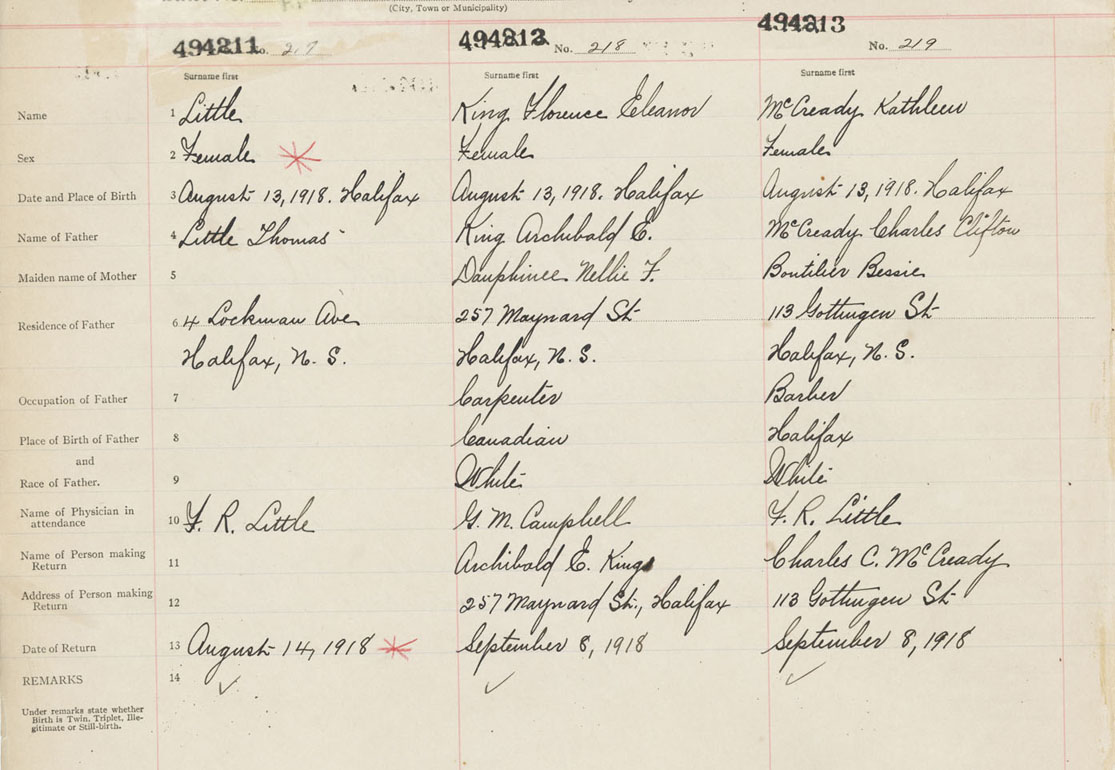 (City, Town or Municipality)
494211 No. 217 494212 No. 218 494213 No. 219
Surname first Surname first Surname first
Name 1 Little King Florence Eleanor McCready Kathleen
Sex 2 Female Female Female
Date and Place of Birth 3 August 13, 1918. Halifax August 13, 1918. Halifax August 13, 1918. Halifax
Name of Father 4 Little Thomas King Archibald E. McCready Charles Clifton
Maiden name of Mother 5 Dauphinee Nellie F. Boutilier Bessie
Residence of Father 6 4 Lockman Ave 257 Maynard St 113 Gottingen St
Halifax, N. S. Halifax, N. S. Halifax, N. S.
Occupation of Father 7 Carpenter Barber
Place of Birth of Father 8 Canadian Halifax
and
Race of Father. 9 White White
Name of Physician in attendance 10 F. R. Little G. M. Campbell F. R. Little
Name of Person making Return 11 Archibald E. King Charles C. McCready
Address of Person making Return 12 257 Maynard St., Halifax 113 Gottingen St
Date of Return 13 August 14, 1918 September 8, 1918 September 8, 1918
REMARKS 14
Under remarks state whether
Birth is Twin, Triplet, Ille-
gitimate or Still-birth.